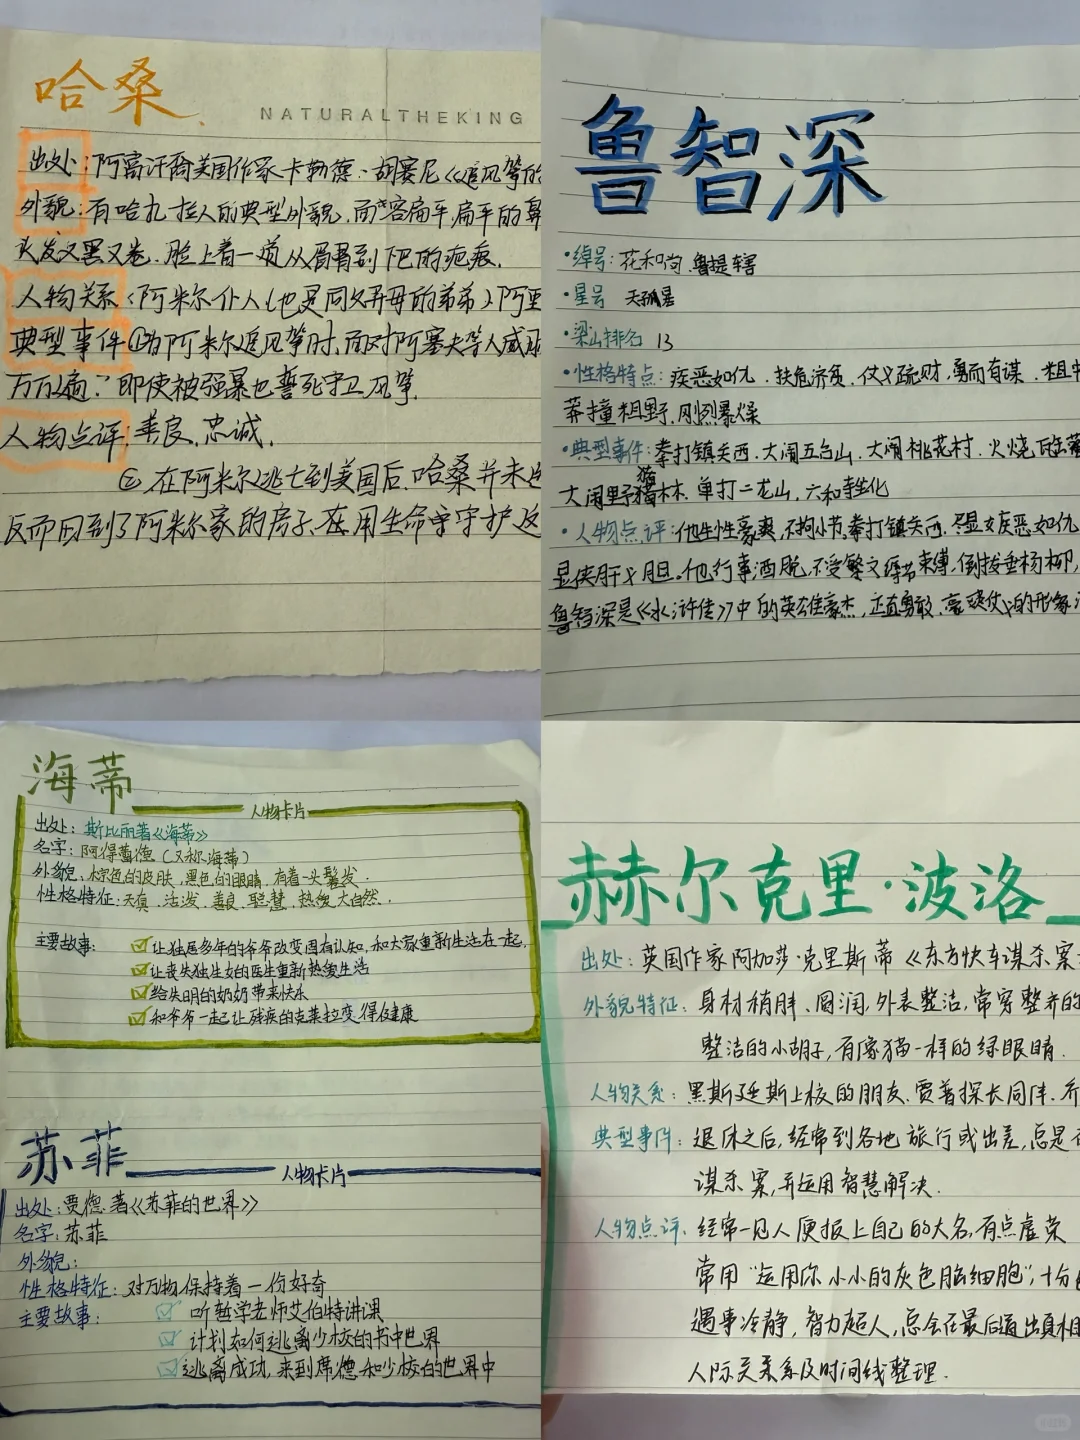 哈桑
NATURALTHEKING
出处:阿富汗裔美国作家卡勒德·胡赛尼《追风筝的
外貌:有哈扎拉人的典型外貌,面容扁平,扁平的鼻
头发又黑又卷.脸上有一道从眉骨到下巴的疤痕.
人物关系:阿米尔仆人(也是同父异母的弟弟)阿里
典型事件①为阿米尔追风筝时,面对阿塞夫等人威
万万遍".即使被强暴也誓死守卫风筝.
人物点评.善良.忠诚.
②在阿米尔逃亡到美国后.哈桑并未
反而回到了阿米尔家的房子.在用生命守守护这
鲁智深
·绰号:花和尚.鲁提辖
·星号 天孤星
·梁山排名 13
·性格特点:疾恶如仇.扶危济贫.仗义疏财,勇而有谋.粗中
莽撞粗野,刚烈暴燥
·典型事件:拳打镇关西.大闹五台山.大闹桃花村.火烧瓦
大闹野猪林.单打二龙山,六和寺坐化
·人物点评:他生性豪爽,不拘小节,拳打镇关西.尽显疾恶如仇
显侠肝义胆。他行事洒脱,不受繁文缛节束缚,倒拔垂杨柳,
鲁智深是《水浒传》中的英雄豪杰,正直勇敢.豪爽仗义的形象
海蒂
人物卡片
出处:斯比丽著《海蒂》
名字:阿得蕾德(又称海蒂)
外貌:棕色的皮肤,黑色的眼睛.有着一头鬈发.
性格特征:天真.活泼.善良.聪慧.热爱大自然.
主要故事: ☑让独居多年的爷爷改变固有认知,和大家重新生活在一起.
☑让丧失独生女的医生重新热爱生活
☑给失明的奶奶带来快乐
☑和爷爷一起让残疾的克莱拉变得健康
苏菲
人物卡片
出处:贾德著《苏菲的世界》
名字:苏菲
外貌:
性格特征:对万物保持着一份好奇
主要故事: ☑听哲学老师艾伯特讲课
☑计划如何逃离少校的书中世界
☑逃离成功,来到席德和少校的世界中
赫尔克里·波洛
出处:英国作家阿加莎·克里斯蒂《东方快车谋杀案
外貌特征:身材稍胖、圆润,外表整洁,常穿整齐的
整洁的小胡子,有像猫一样的绿眼睛.
人物关系:黑斯廷斯上校的朋友.贾普探长同伴.乔
典型事件:退休之后,经常到各地旅行或出差,总是
谋杀案,并运用智慧解决.
人物点评.经常一见人便报上自己的大名,有点虚荣
常用"运用你小小的灰色脑细胞",十分
遇事冷静,智力超人,总会在最后道出真相
人际关系及时间线整理.
小红书